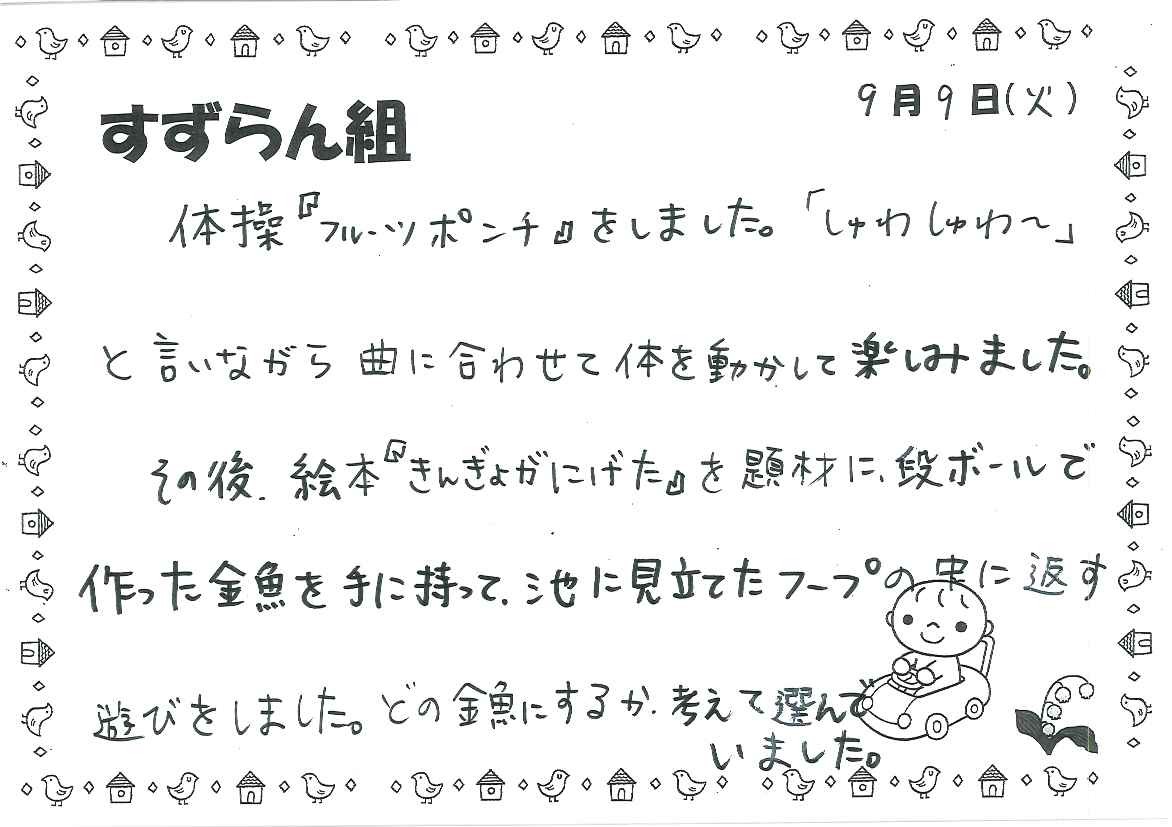 9月9日(火)
すずらん組
体操『フルーツポンチ』をしました。「しゅわしゅわ～」
と言いながら曲に合わせて体を動かして楽しみました。
その後、絵本『きんぎょがにげた』を題材に、段ボールで
作った金魚を手に持って、池に見立てたフープの中に返す
遊びをしました。どの金魚にするか、考えて選んで
いました。